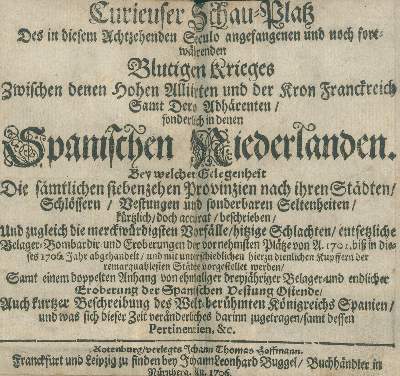 Curieuser Schau-Platz
Des in diesem Achtzehenden Seculo angefangenen und noch fort-
währenden
Blutigen Krieges
Zwischen denen Hohen Alliirten und der Kron Franckreich
Samt Dero Adhärenten /
sonderlich in denen
Spanischen Niederlanden.
Bey welcher Gelegenheit
Die sämtlichen siebenzehen Provinzien nach ihren Städten /
Schlössern / Vestungen und sonderbaren Seltenheiten /
kürtzlich / doch accurat / beschrieben /
Und zugleich die merckwürdigsten Vorfälle / hitzige Schlachten / entsetzliche
Belager- Bombardir- und Eroberungen der vornehmsten Plätze von A. 1701. biß in die-
ses 1706. Jahr abgehandelt / und mit unterschiedlichen hierzu dienlichen Kupffern der
remarquablesten Städte vorgestellet werden /
Samt einem doppelten Anhang von ehmaliger dreyjähriger Belager- und endlicher
Eroberung der Spanischen Vestung Ostende /
Auch kurtzer Beschreibung des Welt-berühmten Königreichs Spanien /
und was sich dieser Zeit veränderliches darinn zugetragen / samt dessen
Pertinentien, &c.
Rotenburg / verlegts Johann Thomas Hoffmann.
Franckfurt und Leipzig zu finden bey Johann Leonhard Buggel / Buchhändler in
Nürnberg. An. 1706.